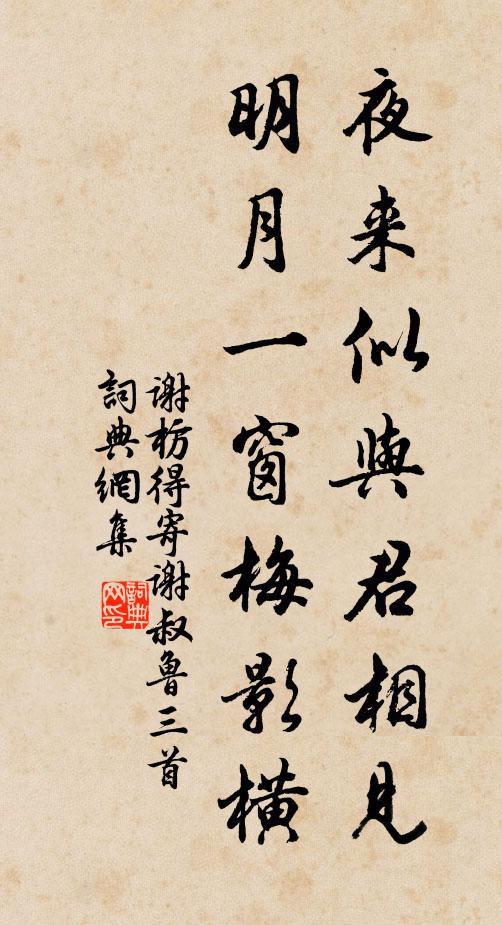 夜来似與君相見
明月一窗梅影橫
谢枋得寄谢叔魯三首
詞典網集
詞典
网印